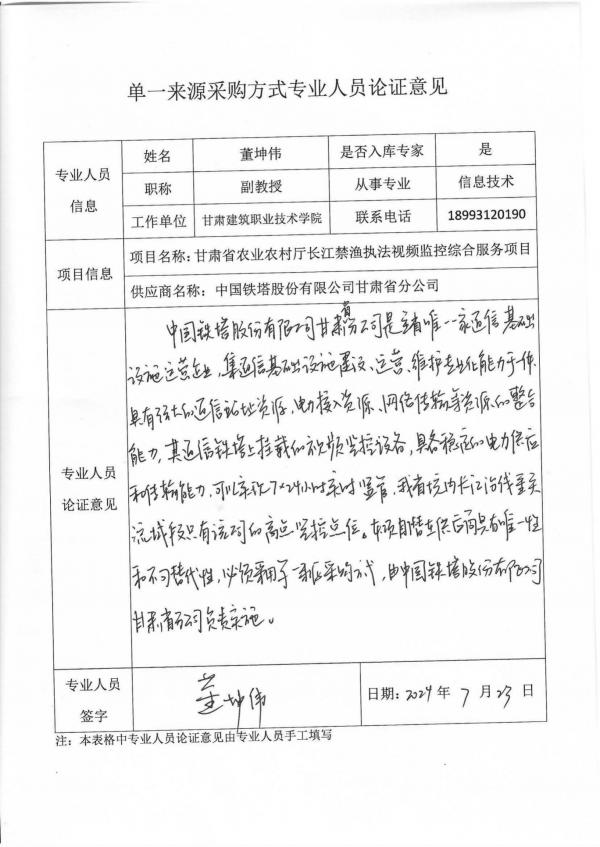 单一来源采购方式专业人员论证意见
专业人员信息
姓名 董坤伟 是否入库专家 是
职称 副教授 从事专业 信息技术
工作单位 甘肃建筑职业技术学院 联系电话 18993120190
项目信息
项目名称：甘肃省农业农村厅长江禁渔执法视频监控综合服务项目
供应商名称：中国铁塔股份有限公司甘肃省分公司
专业人员论证意见
中国铁塔股份有限公司甘肃省分公司是我省唯一一家通信基础
设施运营企业，集通信基础设施建设、运营、维护专业化能力于一体，
具有强大的通信站址资源，电力接入资源、网络传输等资源的整合
能力，其通信铁塔上挂载的视频监控设备，具备稳定的电力供应
和传输能力，可以实现7×24小时实时监管，我省境内长江沿线重点
流域段只有该公司的高点监控点位。本项目供应商具有唯一性
和不可替代性，必须采用单一来源采购方式，由中国铁塔股份有限公司
甘肃省分公司负责实施。
专业人员签字
董坤伟
日期：2024年7月23日
注：本表格中专业人员论证意见由专业人员手工填写